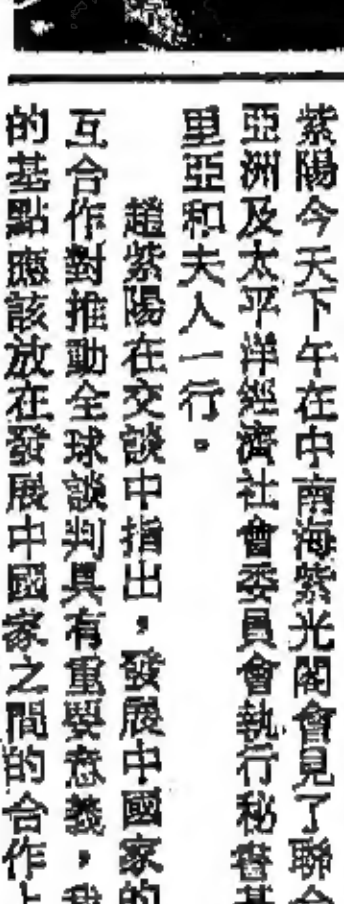 紫陽今天下午在中南海紫光閣會見了聯合
亞洲及太平洋經濟社會委員會執行秘書基
里亞和夫人一行。
趙紫陽在交談中指出，發展中國家的
互合作對推動全球談判具有重要意義，我
的基點應該放在發展中國家之間的合作上